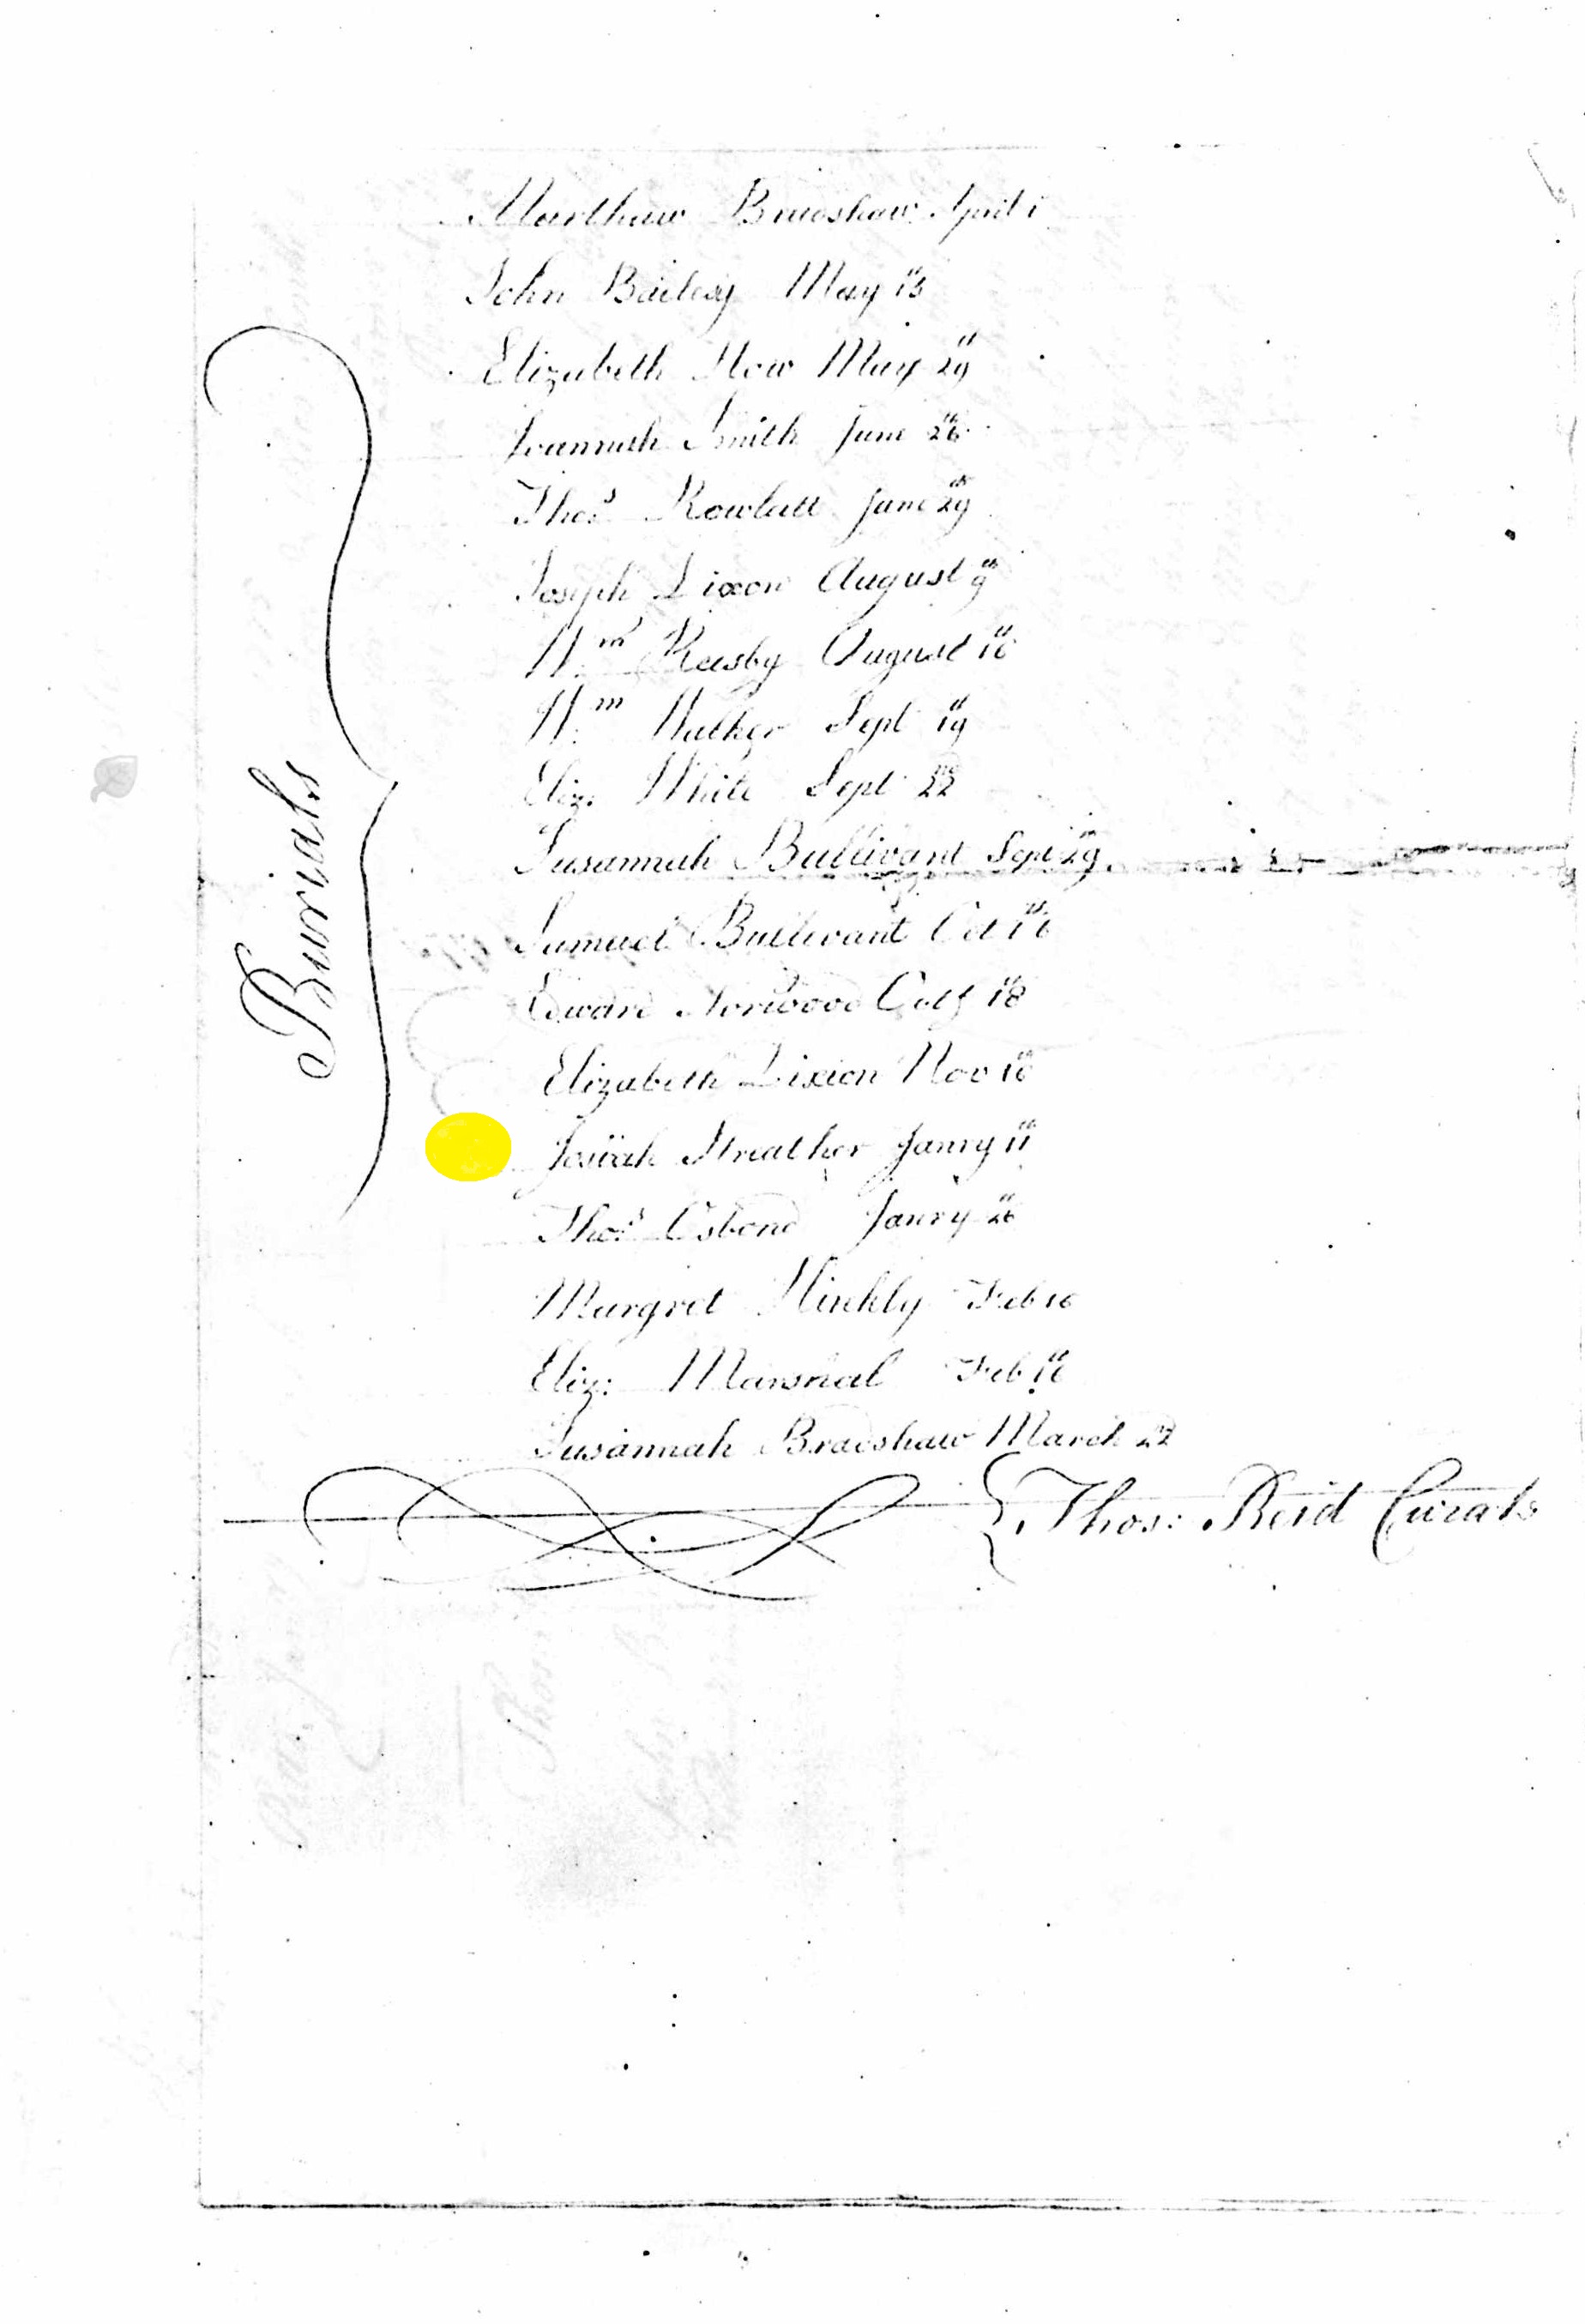 Burials
Marthaw Bradshaw April 1
John Bailey May 13
Elizabeth How May 29
Joannah Smith June 26
Thos. Rowlatt June 29
Joseph Dixon August 9
Wm August 16
Wm Walker Sept 19
Eliz. White Sept 22
Susannah Bullivant Sept 29
Samuel Bullivant Oct 16
Edward Norwood 18
Elizabeth Dixion Nov 16
Josiah Streather Janry 11
Thos. Osbond Janry 26
Margret Hinkly Feb 16
Eliz: Marshal Feb 16
Susannah Bradshaw March 22
Thos: Reid Curate